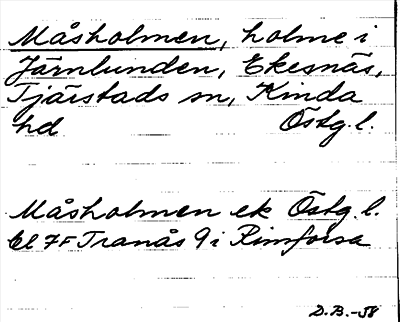 Måsholmen, holme i
Järnlunden, Ekesnäs,
Tjärstads sn, Kinda
hd Östg. l.
Måsholmen ek Östg. l.
bl 7F Tranås 9 i Rimforsa
D.B.-58